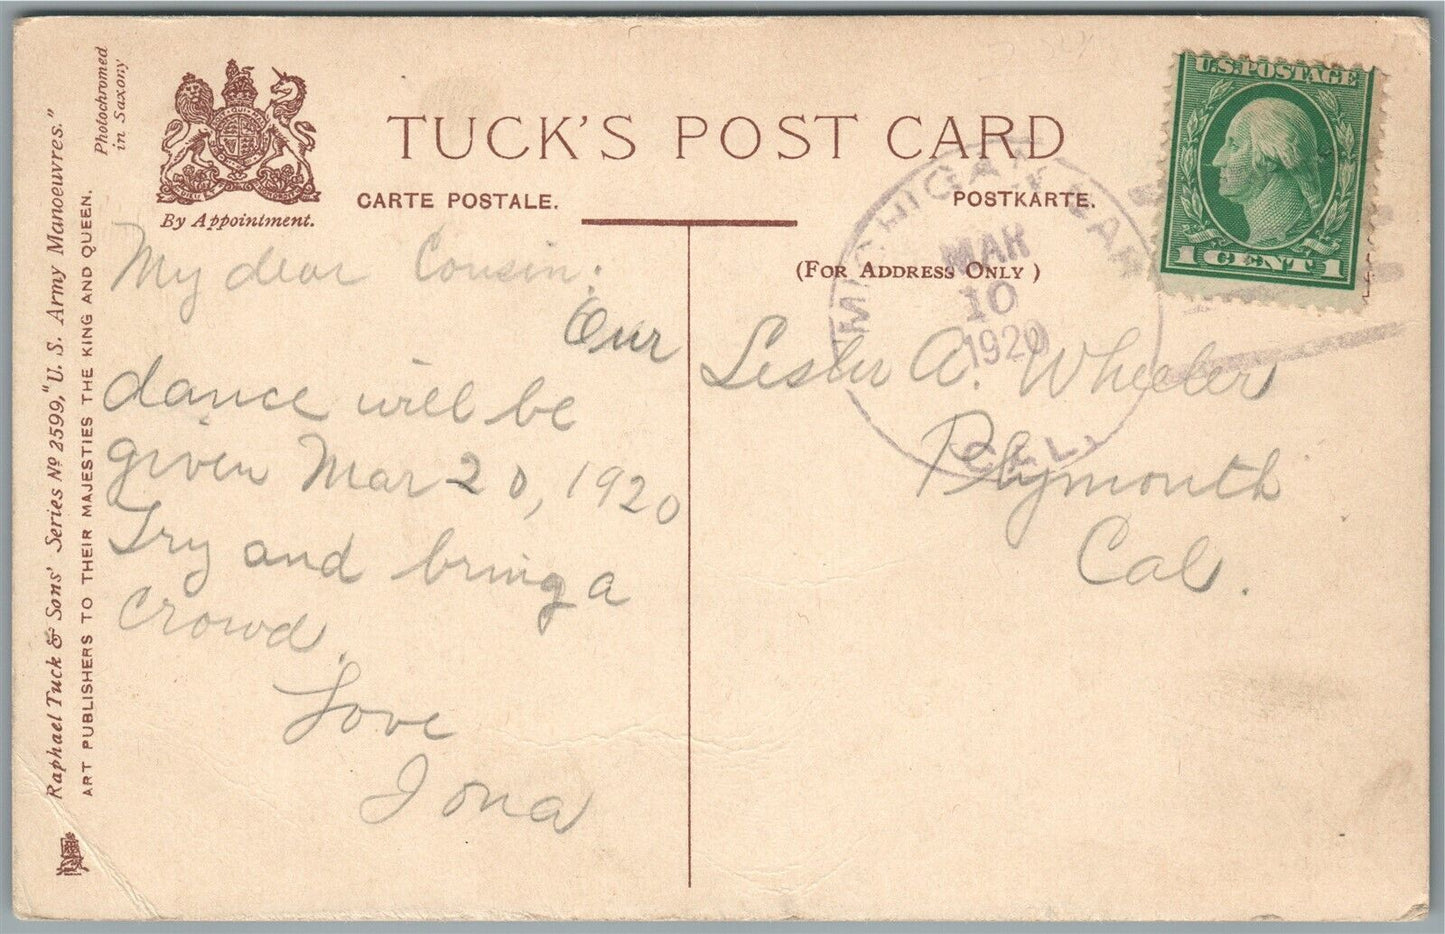 Photochromed
in Saxony
Raphael Tuck & Sons' Series Nº 2599, "U. S. Army Manoeuvres."
ART PUBLISHERS TO THEIR MAJESTIES THE KING AND QUEEN.
By Appointment.
TUCK'S POST CARD
CARTE POSTALE.
POSTKARTE.
(FOR ADDRESS ONLY)
U.S. POSTAGE
1 CENT 1
MICHIGAN BAR
MAR
10
1920
CAL.
My dear Cousin:
Our
dance will be
given Mar 20, 1920
Try and bring a
crowd.
Love
Iona
Lester A. Wheeler
Plymouth
Cal.